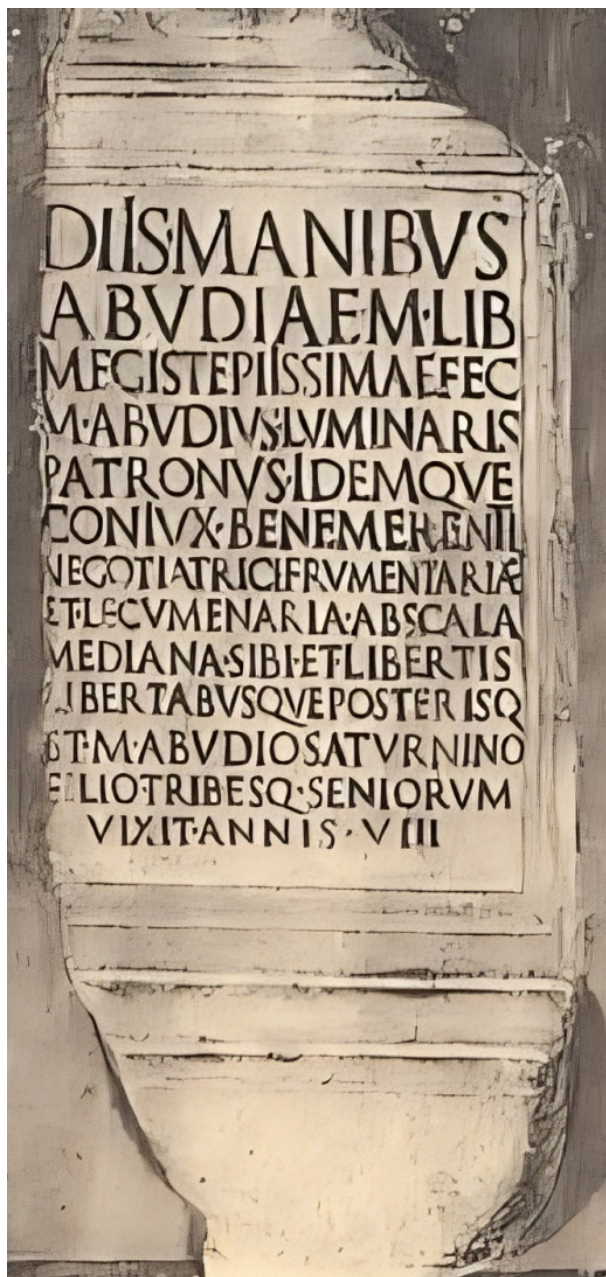 DIIS·MANIBVS
ABVDIAE·M·LIB
MEGISTE PIISSIMAE FEC
M·ABVDIVS·LVMINARIS
PATRONVS·IDEMQVE
CONIVX·BENEMERENTI
NEGOTIATRICI FRVMENTARIAE
ET·LECVMENARIA·AB SCALA
MEDIANA·SIBI·ET·LIBERTIS
LIBERTABVSQVE POSTERISQ
ET·M·ABVDIO SATVRNINO
FILIO·TRIB ESQ·SENIORVM
VIXIT·ANNIS·VIII